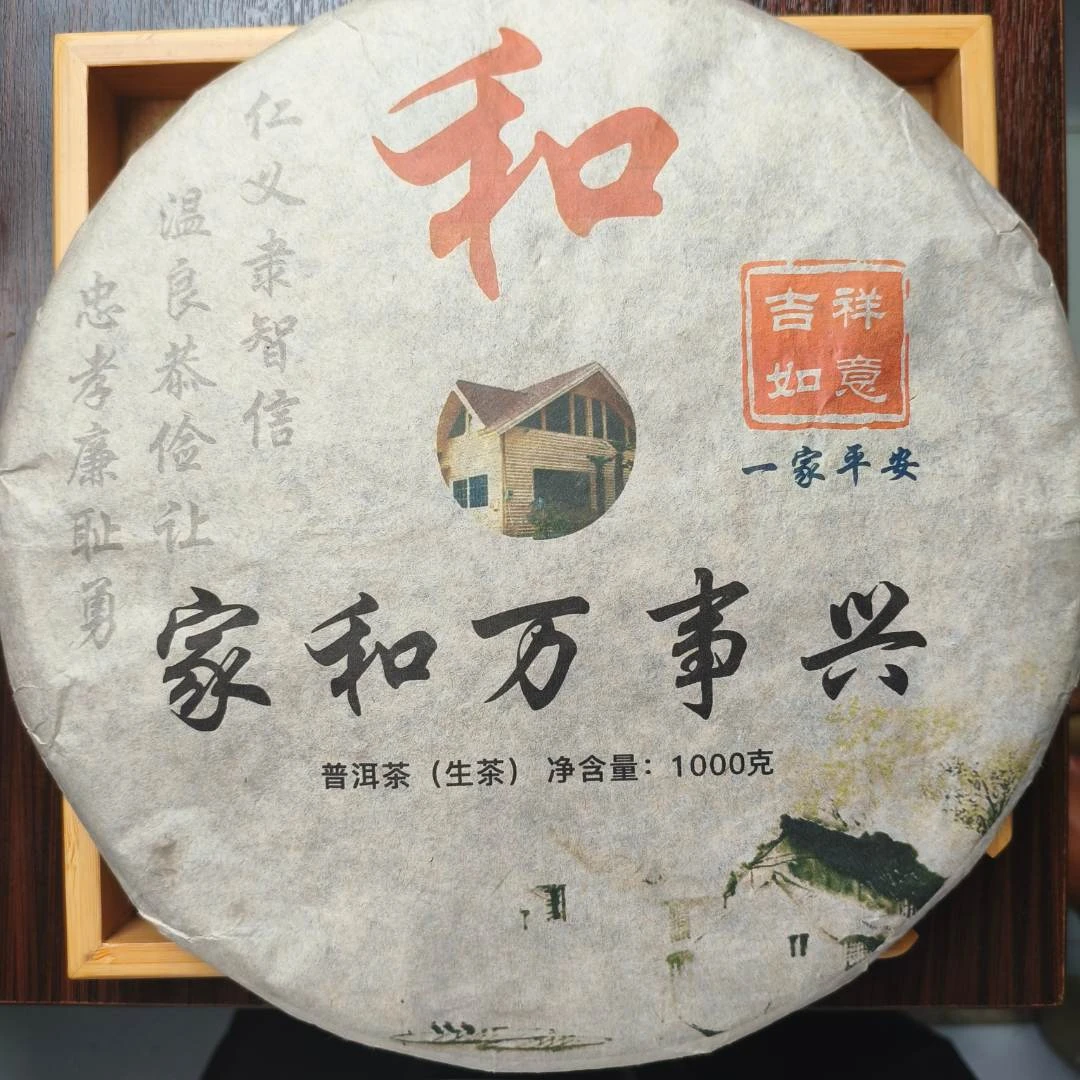 和
仁义隶智信
温良恭俭让
忠孝廉耻勇
吉祥
如意
一家平安
家和万事兴
普洱茶（生茶） 净含量：1000克